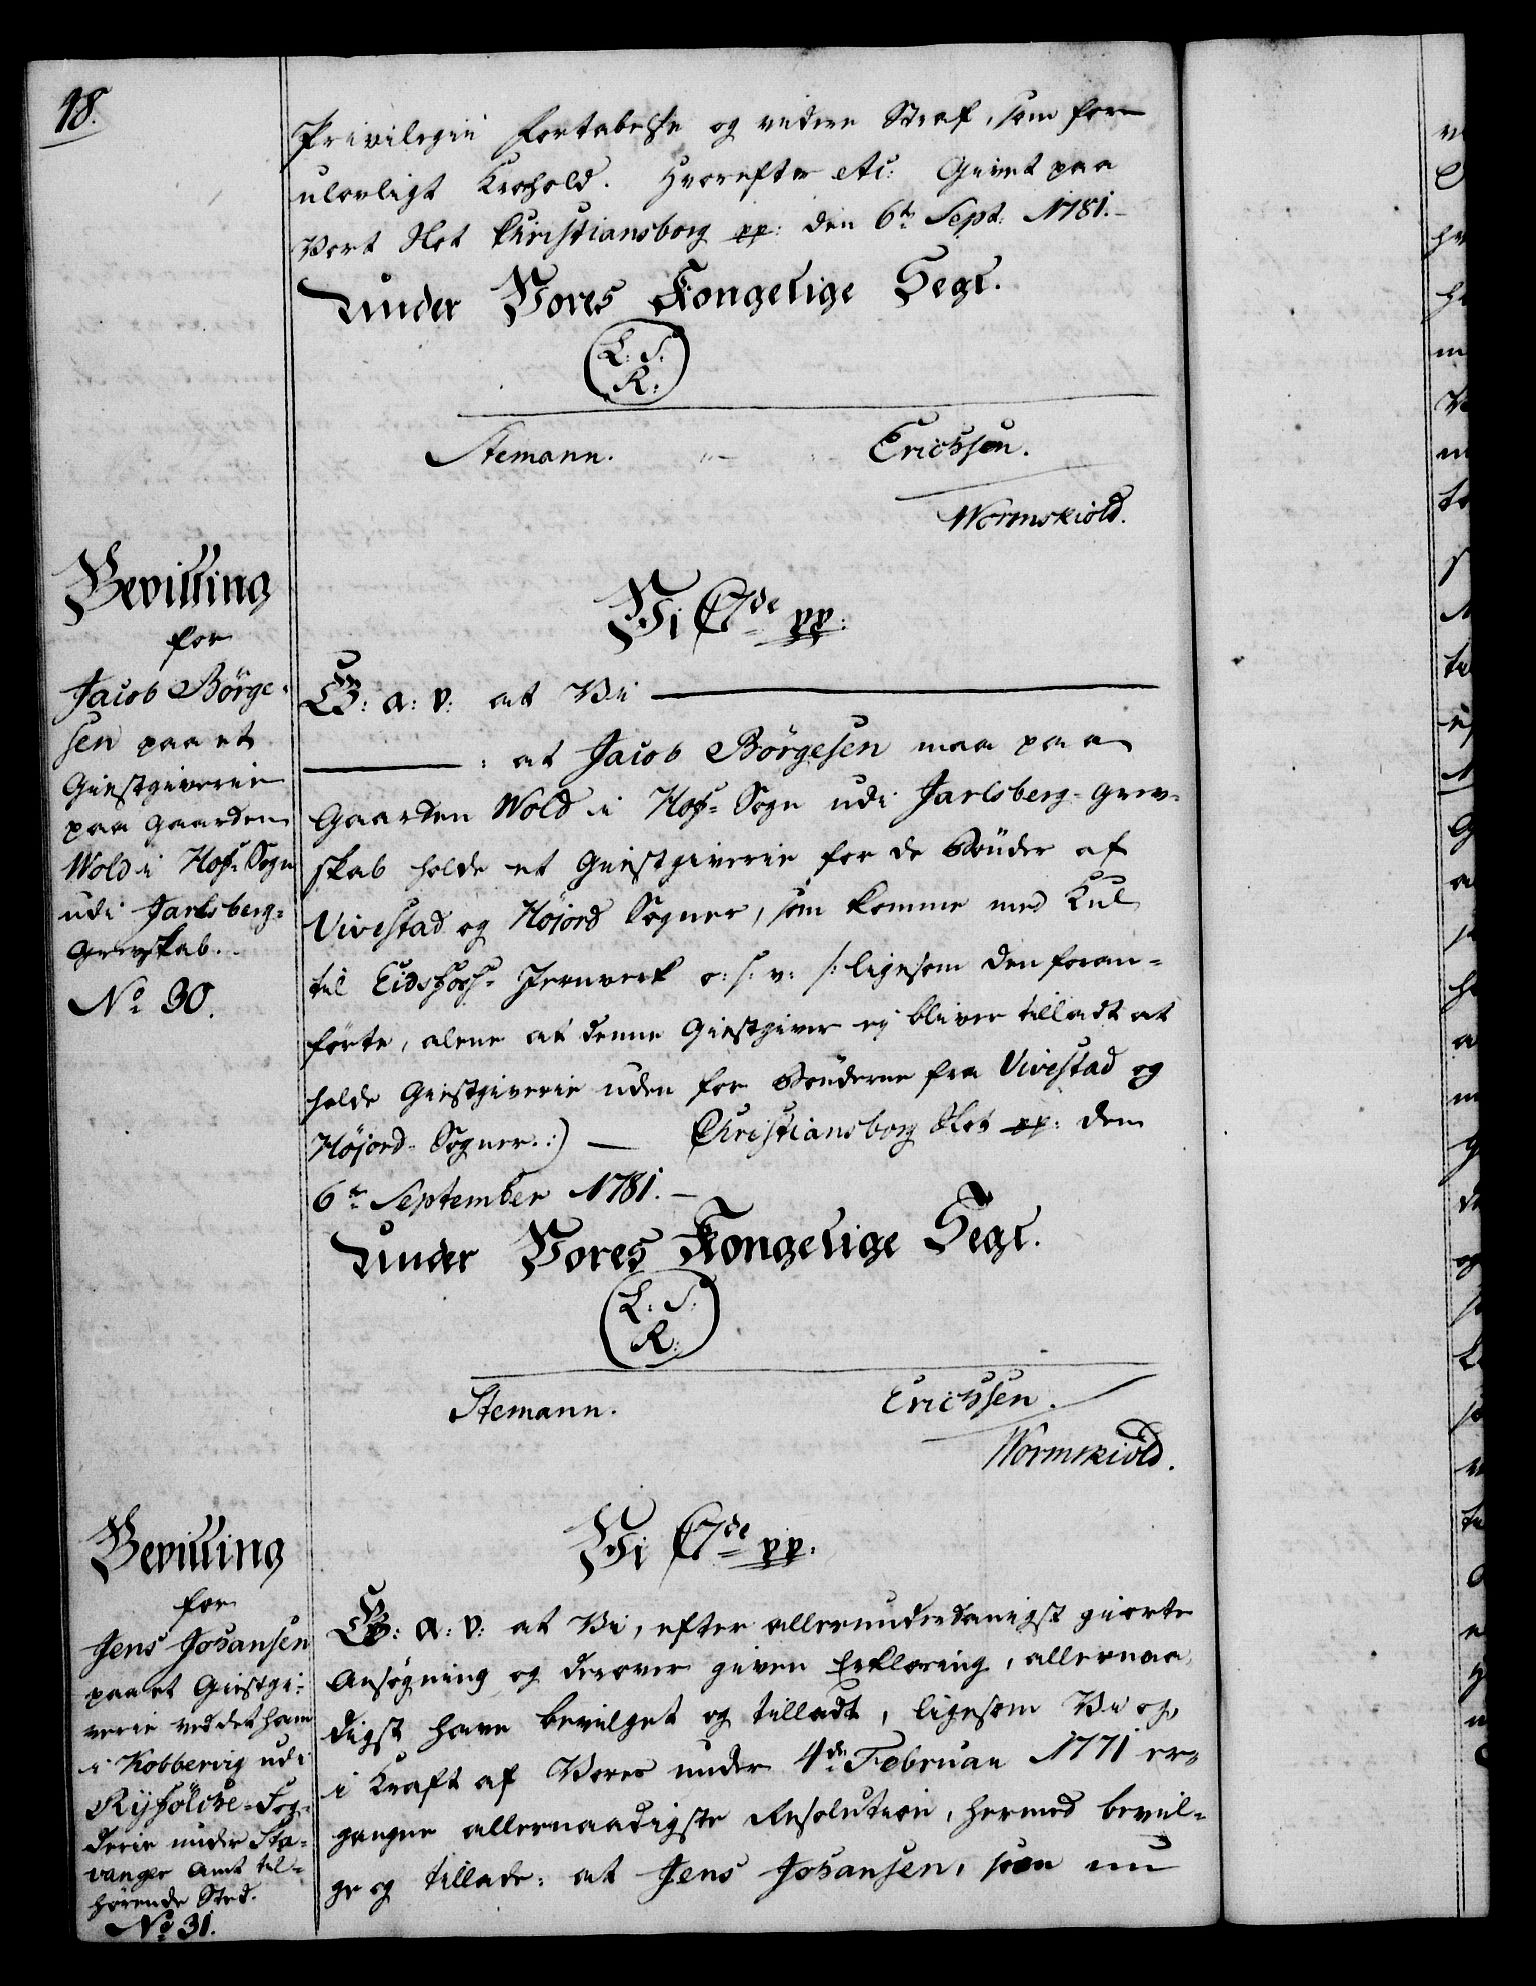 18.
Privilegii Fortabelse og videre Straf, som for
ulovligt Krohold. Hvorefter etc: Givet paa
Vort Slot Christiansborg pp: den 6te Sept. 1781.
Under Vores Kongelige Segl.
L. S.
R:
Stemann. Erichsen.
Wormskiold.
Bevilling
for
Jacob Börge-
sen paa et
Giestgiverie
paa Gaarden
Wold i Hofs-Sogn
udi Jarlsberg-
Grevskab.
No 30.
Vi C 7de pp:
G: a: v: at Vi
: at Jacob Börgesen maa paa
Gaarden Wold i Hofs-Sogn udi Jarlsberg-Grev-
skab holde et Giestgiverie for de Bönder af
Vivestad og Höjord Sogner, som komme med Kul
til Eidsfoss-Jernverk o: s: v: /: ligesom den foran-
förte, alene at denne Giestgiver ej bliver tilladt at
holde Giestgiverie uden for Bönderne fra Vivestad og
Höjord-Sogner. :) Christiansborg Slot pp: den
6te September 1781.
Under Vores Kongelige Segl.
L: S:
R:
Stemann. Erichsen.
Wormskiold.
Bevilling
for
Jens Johansen
paa et Giestgi-
verie ved det ham
i Kobbervig udi
Ryefölcke-Fog-
derie under Sta-
vanger Amt til-
hörende Sted.
No 31.
Vi C 7de pp.
G: a: v: at Vi, efter allerunderdanigst giorte
Ansögning og derover given Erklæring, allernaa-
digst have bevilget og tilladt, ligesom Vi og,
i Kraft af Vores under 4de Februari 1771 er-
gangne allernaadigste Resolution, hermed bevil-
ge og tillade: at Jens Johansen, som nu